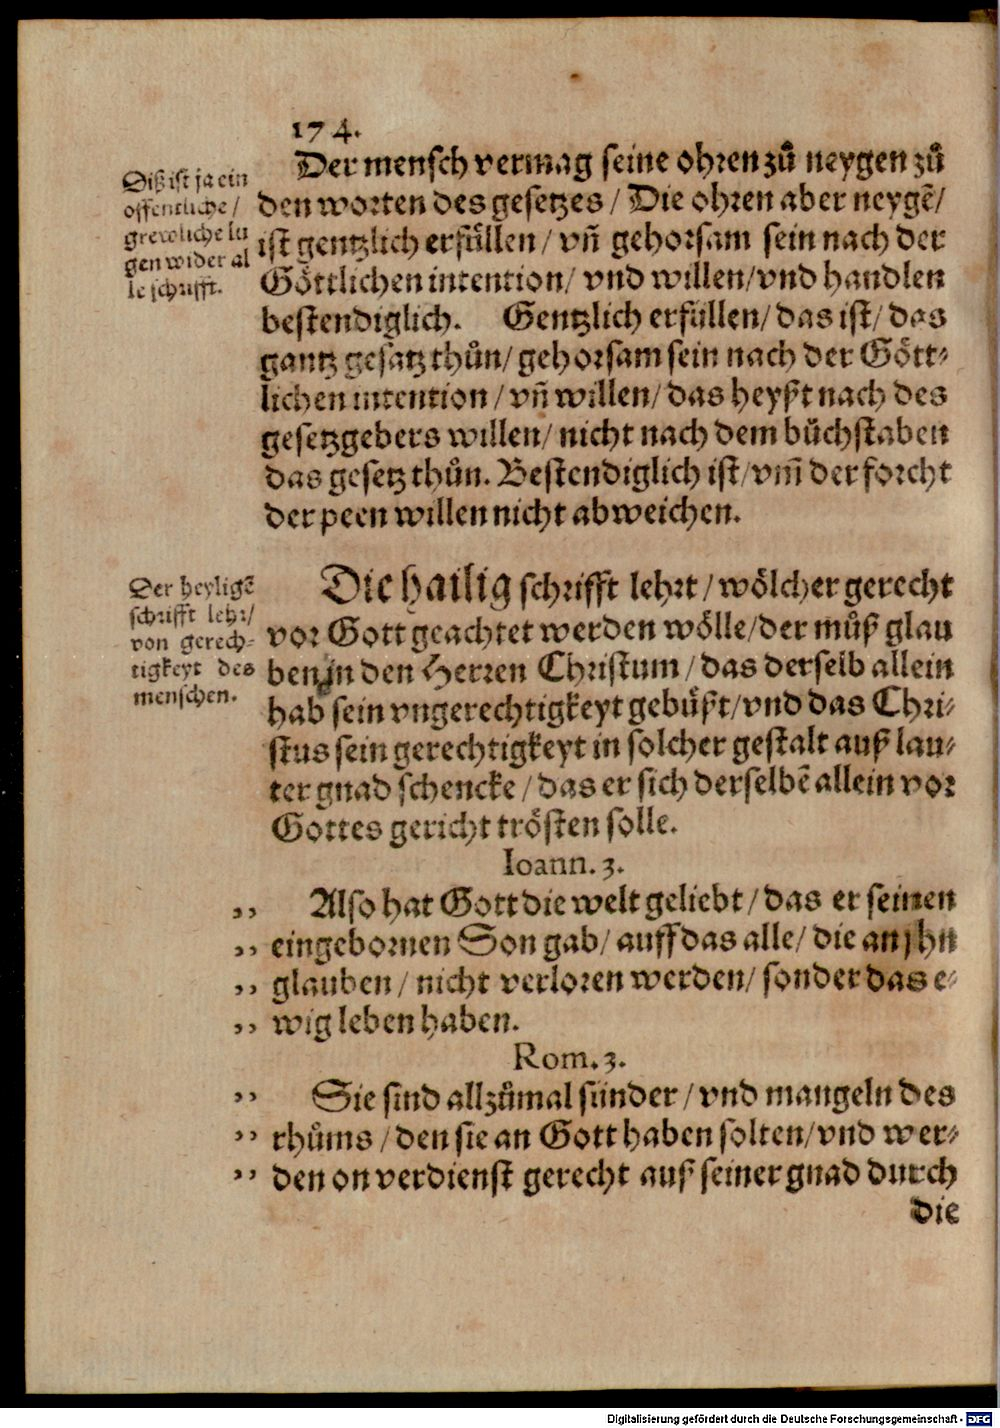 174.
Der mensch vermag seine ohren zů neygen zů
den worten des gesetzes / Die ohren aber neygẽ /
ist gentzlich erfüllen / vñ gehorsam sein nach der
Göttlichen intention / vnd willen / vnd handlen
bestendiglich. Gentzlich erfüllen / das ist / das
gantz gesatz thůn / gehorsam sein nach der Gött-
lichen intention / vñ willen / das heyßt nach des
gesetzgebers willen / nicht nach dem bůchstaben
das gesetz thůn. Bestendiglich ist / vm̃ der forcht
der peen willen nicht abweichen.
Diß ist ja ein
offentliche /
grewliche lu
gen wider al
le schrifft.
Die hailig schrifft lehrt / wölcher gerecht
vor Gott geachtet werden wölle / der můß glau
ben in den Herren Christum / das derselb allein
hab sein vngerechtigkeyt gebüßt / vnd das Chri-
stus sein gerechtigkeyt in solcher gestalt auß lau-
ter gnad schencke / das er sich derselbẽ allein vor
Gottes gericht trösten solle.
Der heyligẽ
schrifft lehr /
von gerech-
tigkeyt des
menschen.
Ioann. 3.
,, Also hat Gott die welt geliebt / das er seinen
,, eingebornen Son gab / auff das alle / die an jhn
,, glauben / nicht verloren werden / sonder das e-
,, wig leben haben.
Rom. 3.
,, Sie sind allzůmal sünder / vnd mangeln des
,, rhůms / den sie an Gott haben solten / vnd wer-
,, den on verdienst gerecht auß seiner gnad durch
die
Digitalisierung gefördert durch die Deutsche Forschungsgemeinschaft - DFG